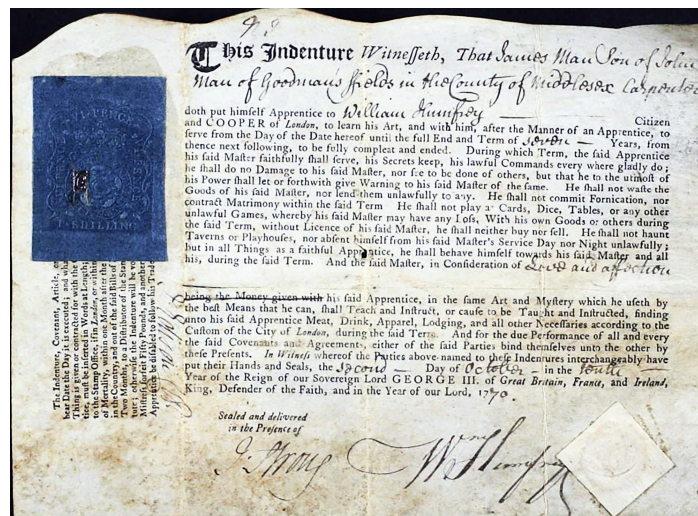 This Indenture Witnesseth, That James Man Son of John
Man of Goodman's ffields in the County of Middlesex Carpenter
doth put himself Apprentice to William Humfrey Citizen
and COOPER of London, to learn his Art, and with him, after the Manner of an Apprentice, to
serve from the Day of the Date hereof until the full End and Term of seven Years, from
thence next following, to be fully compleat and ended. During which Term, the said Apprentice
his said Master faithfully shall serve, his Secrets keep, his lawful Commands every where gladly do;
he shall do no Damage to his said Master, nor see to be done of others, but that he to the utmost of
his Power shall let or forthwith give Warning to his said Master of the same. He shall not waste the
Goods of his said Master, nor lend them unlawfully to any. He shall not commit Fornication, nor
contract Matrimony within the said Term He shall not play at Cards, Dice, Tables, or any other
unlawful Games, whereby his said Master may have any Loss, With his own Goods or others during
the said Term, without Licence of his said Master, he shall neither buy nor sell. He shall not haunt
Taverns or Playhouses, nor absent himself from his said Master's Service Day nor Night unlawfully;
but in all Things as a faithful Apprentice, he shall behave himself towards his said Master and all
his, during the said Term. And the said Master, in Consideration of Love and affection
being the Money given with his said Apprentice, in the same Art and Mystery which he useth by
the best Means that he can, shall Teach and Instruct, or cause to be Taught and Instructed, finding
unto his said Apprentice Meat, Drink, Apparel, Lodging, and all other Necessaries according to the
Custom of the City of London, during the said Term. And for the due Performance of all and every
the said Covenants and Agreements, either of the said Parties bind themselves unto the other by
these Presents. In Witness whereof the Parties above-named to these Indentures interchangeably have
put their Hands and Seals, the second Day of October in the tenth
Year of the Reign of our Sovereign Lord GEORGE III. of Great Britain, France, and Ireland,
King, Defender of the Faith, and in the Year of our Lord, 1770.
Sealed and delivered
in the Presence of
Wm Humfrey
VI PENCE
SHILLING
The Indenture, Covenant, Article, or
bear Date the Day it is executed; and what
Thing is given or contracted for with the
tice, must be inserted in Words at Length;
to the Stamp Office, if in London, or within
of Mortality, within one Month after the
in the Country, and out of the said Bills of
Two Months, to a Distributor of the Stamps
ture; otherwise the Indenture will be void
Mistress forfeit Fifty Pounds, and another
Apprentice be disabled to follow his Trade